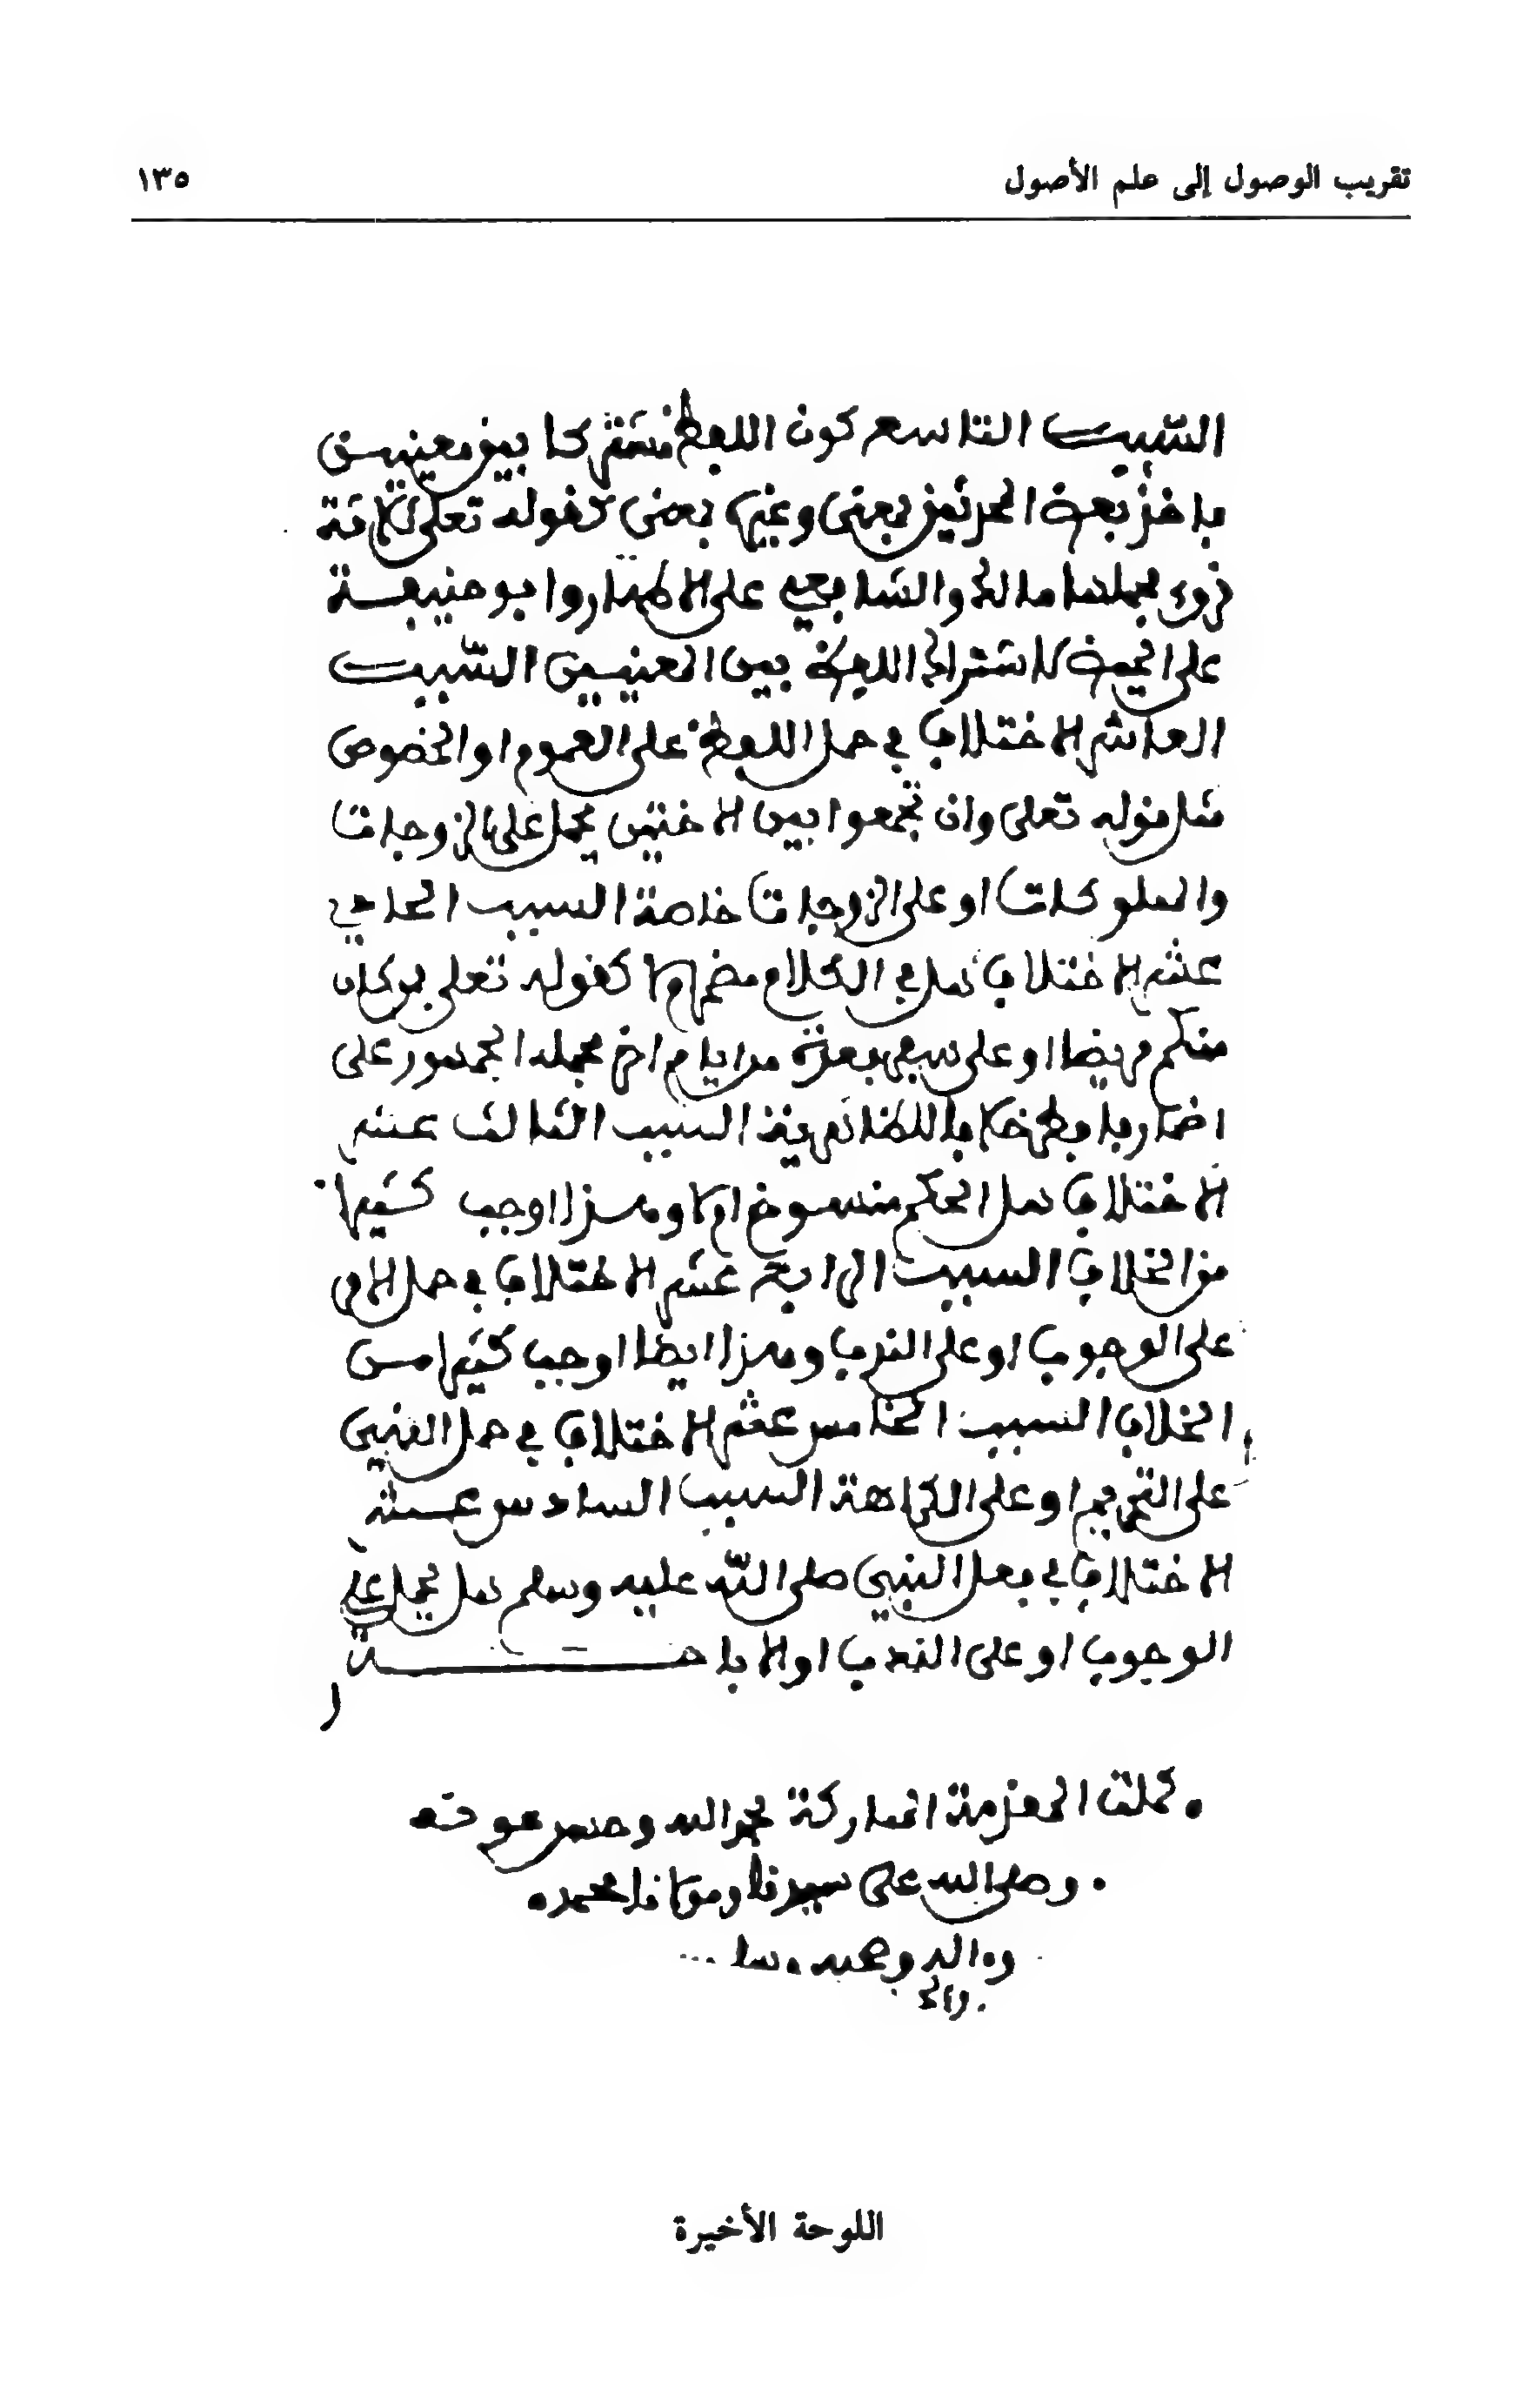 تقريب الوصول إلى علم الأصول
١٣٥
السبب التاسع كون اللفظ مشتركا بين معنيين
فاخذ بعض المجتهدين بمعنى وغيره بمعنى كقوله تعلى ثلاثة
قروء فحملها مالك والشافعي على الاطهار وابو حنيفة
على الحيض لاشتراك اللفظ بين المعنيين السبب
العاشر الاختلاف في حمل اللفظ على العموم او الخصوص
مثل قوله تعلى وان تجمعوا بين الاختين يحمل على الزوجات
والمملوكات او على الزوجات خاصة السبب الحادي
عشر الاختلاف هل في الكلام مضمر ام لا كقوله تعلى فمن كان
منكم مريضا او على سفر فعدة من ايام اخر فحمله الجمهور على
اضمار فافطر خلافا للظاهرية السبب الثالث عشر
الاختلاف هل الحكم منسوخ ام لا وهذا اوجب كثيرا
من الخلاف السبب الرابع عشر الاختلاف في حمل الامر
على الوجوب او على الندب وهذا ايضا اوجب كثيرا من
الخلاف السبب الخامس عشر الاختلاف في حمل النهي
على التحريم او على الكراهة السبب السادس عشر
الاختلاف في فعل النبي صلى الله عليه وسلم هل يحمل على
الوجوب او على الندب او الاباحة
كملت المقدمة المباركة بحمد الله وحسن عونه
وصلى الله على سيدنا ومولانا محمد
وءاله وصحبه
اللوحة الأخيرة